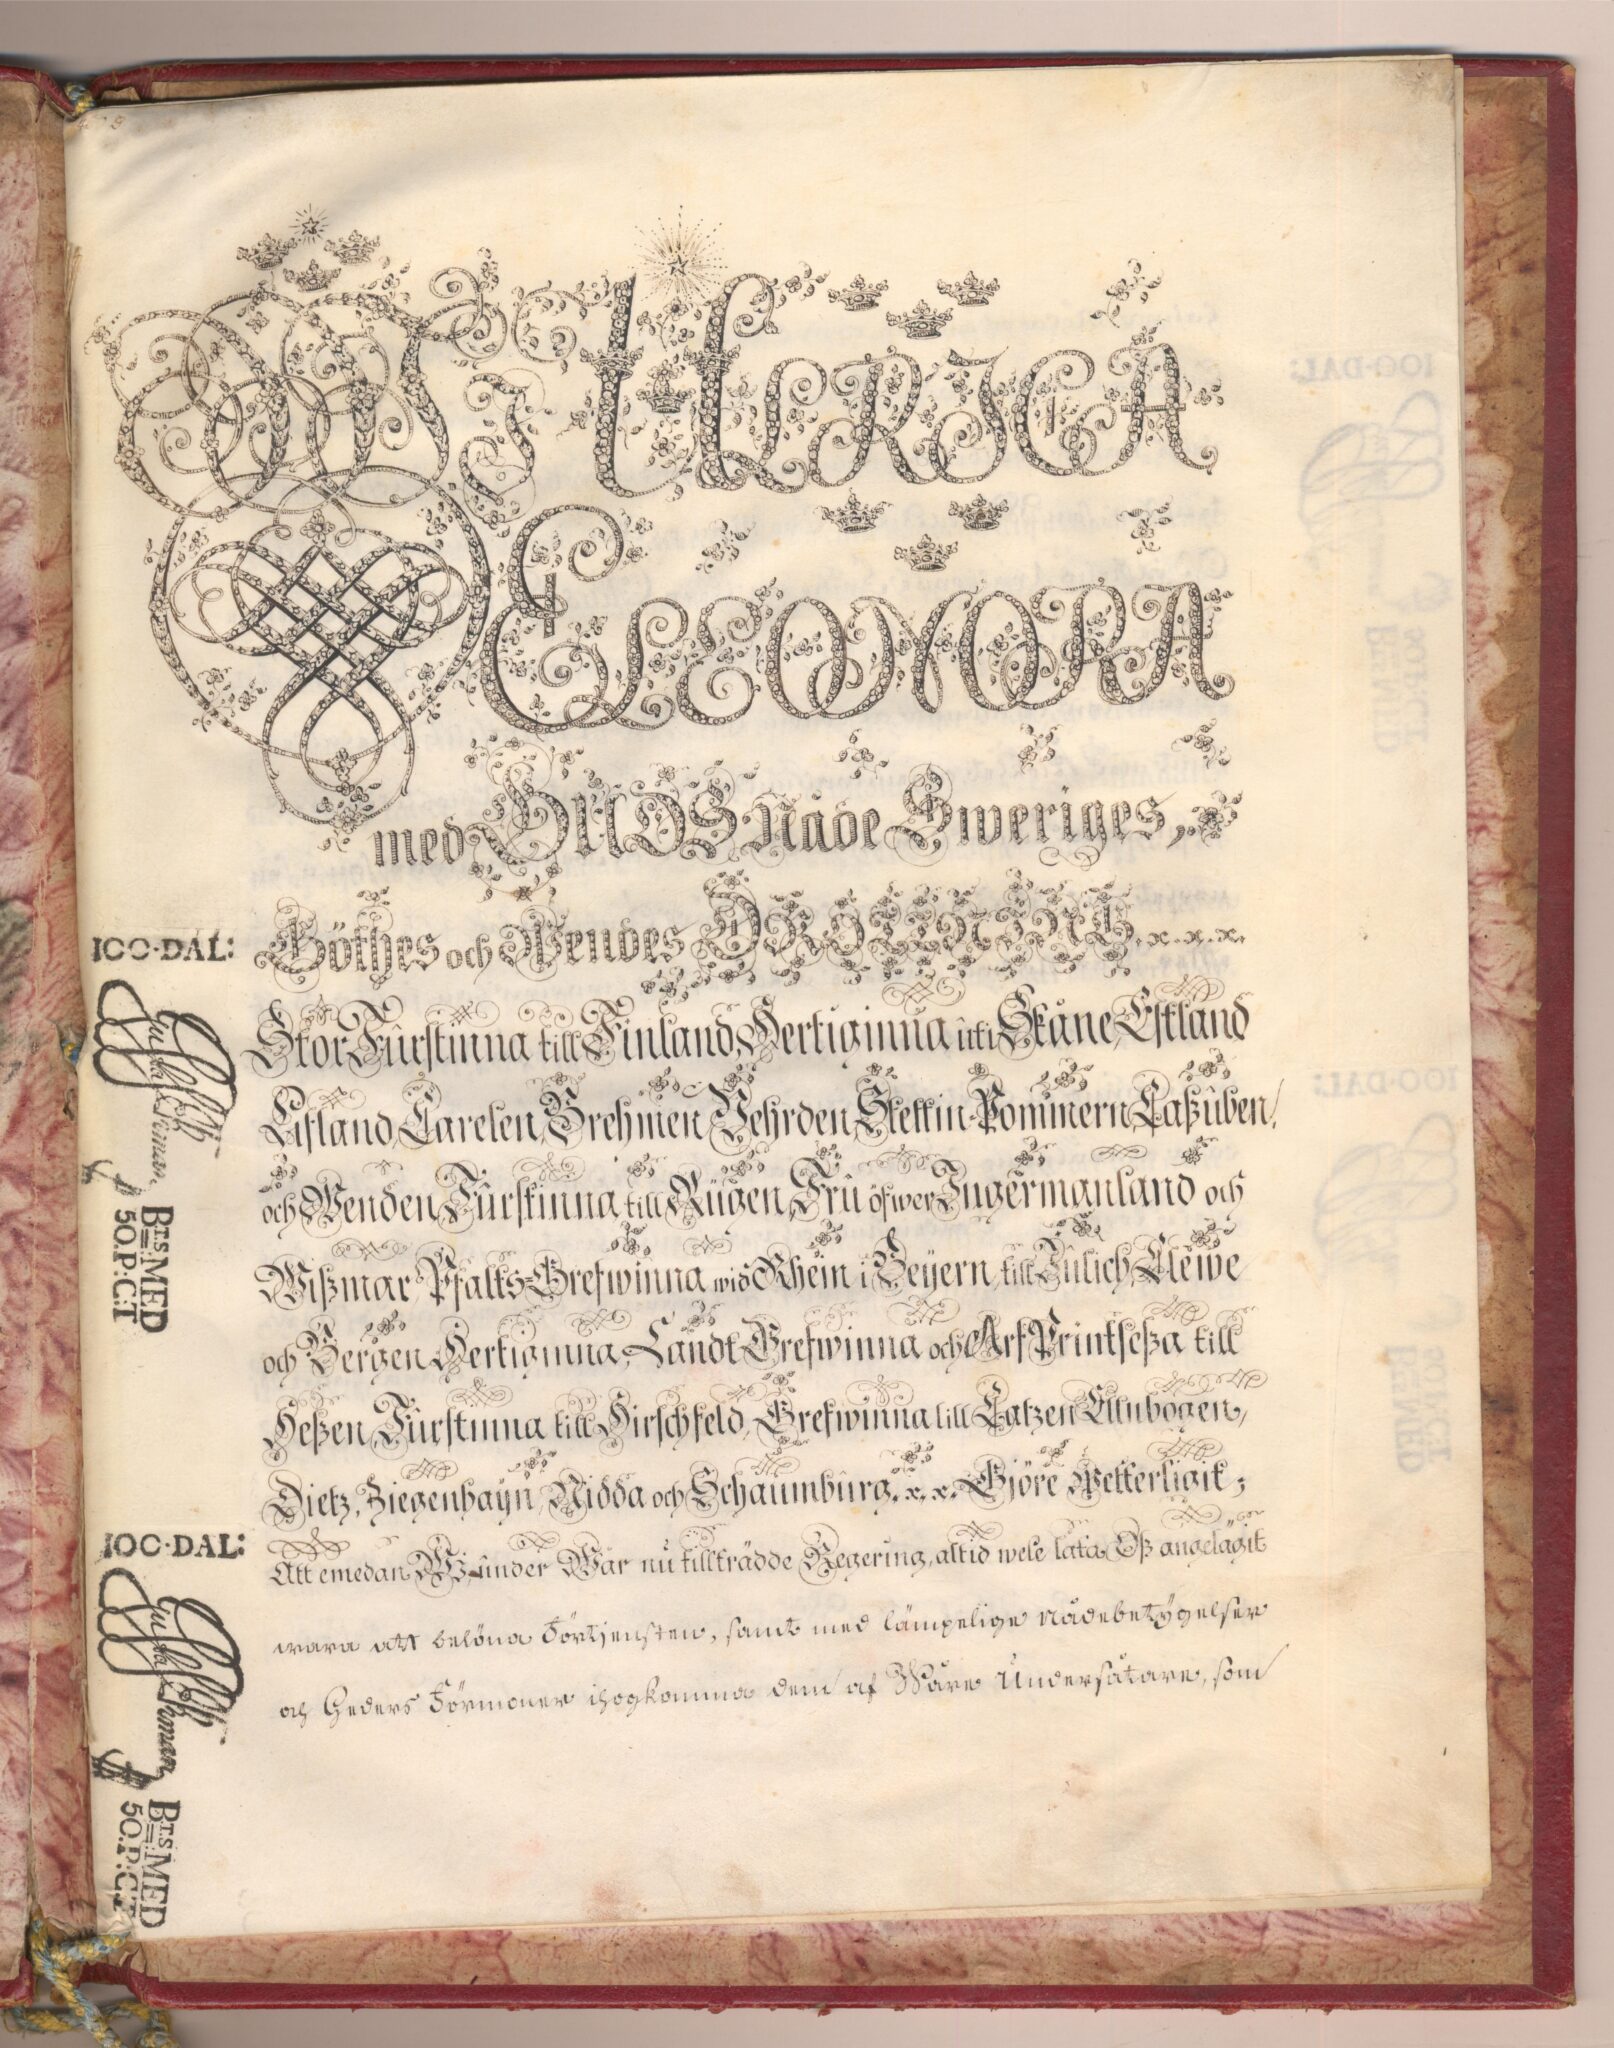 Wij ULRICA
ELEONORA
med GUDS Nåde Sweriges,
Göthes och Wendes DROTTNING. x. x. x.
Stor Fûrstinna till Finland, Hertiginna ûti Skåne, Estland
Lifland, Carelen, Brehmen, Vehrden, Stettin-Pommern, Caßûben,
och Wenden, Fûrstinna till Rûgen, Frû öfwer Ingermanland och
Wißmar, Pfaltz-Grefwinna wid Rhein i Beyern, till Jûlich, Clewe
och Bergen Hertiginna, Landt Grefwinna och Arf Printseßa till
Heßen, Fûrstinna till Hirschfeld, Grefwinna till Catzen Ellnbogen,
Dietz, Ziegenhayn, Nidda och Schaumbûrg. x. x. Giöre Wetterligit;
Att emedan Wij under Wår nu tillträdde Regering, altid wele låta Oß angelägit
wara att belöna Förtjensten, samt med lämpelige Nådebetygelser
och Heders Förmoner ihogkomma dem af Wåre Undersåtare, som
100·DAL:
BT.S:MED
50.P:CT
100·DAL:
BT.S:MED
50.P:CT